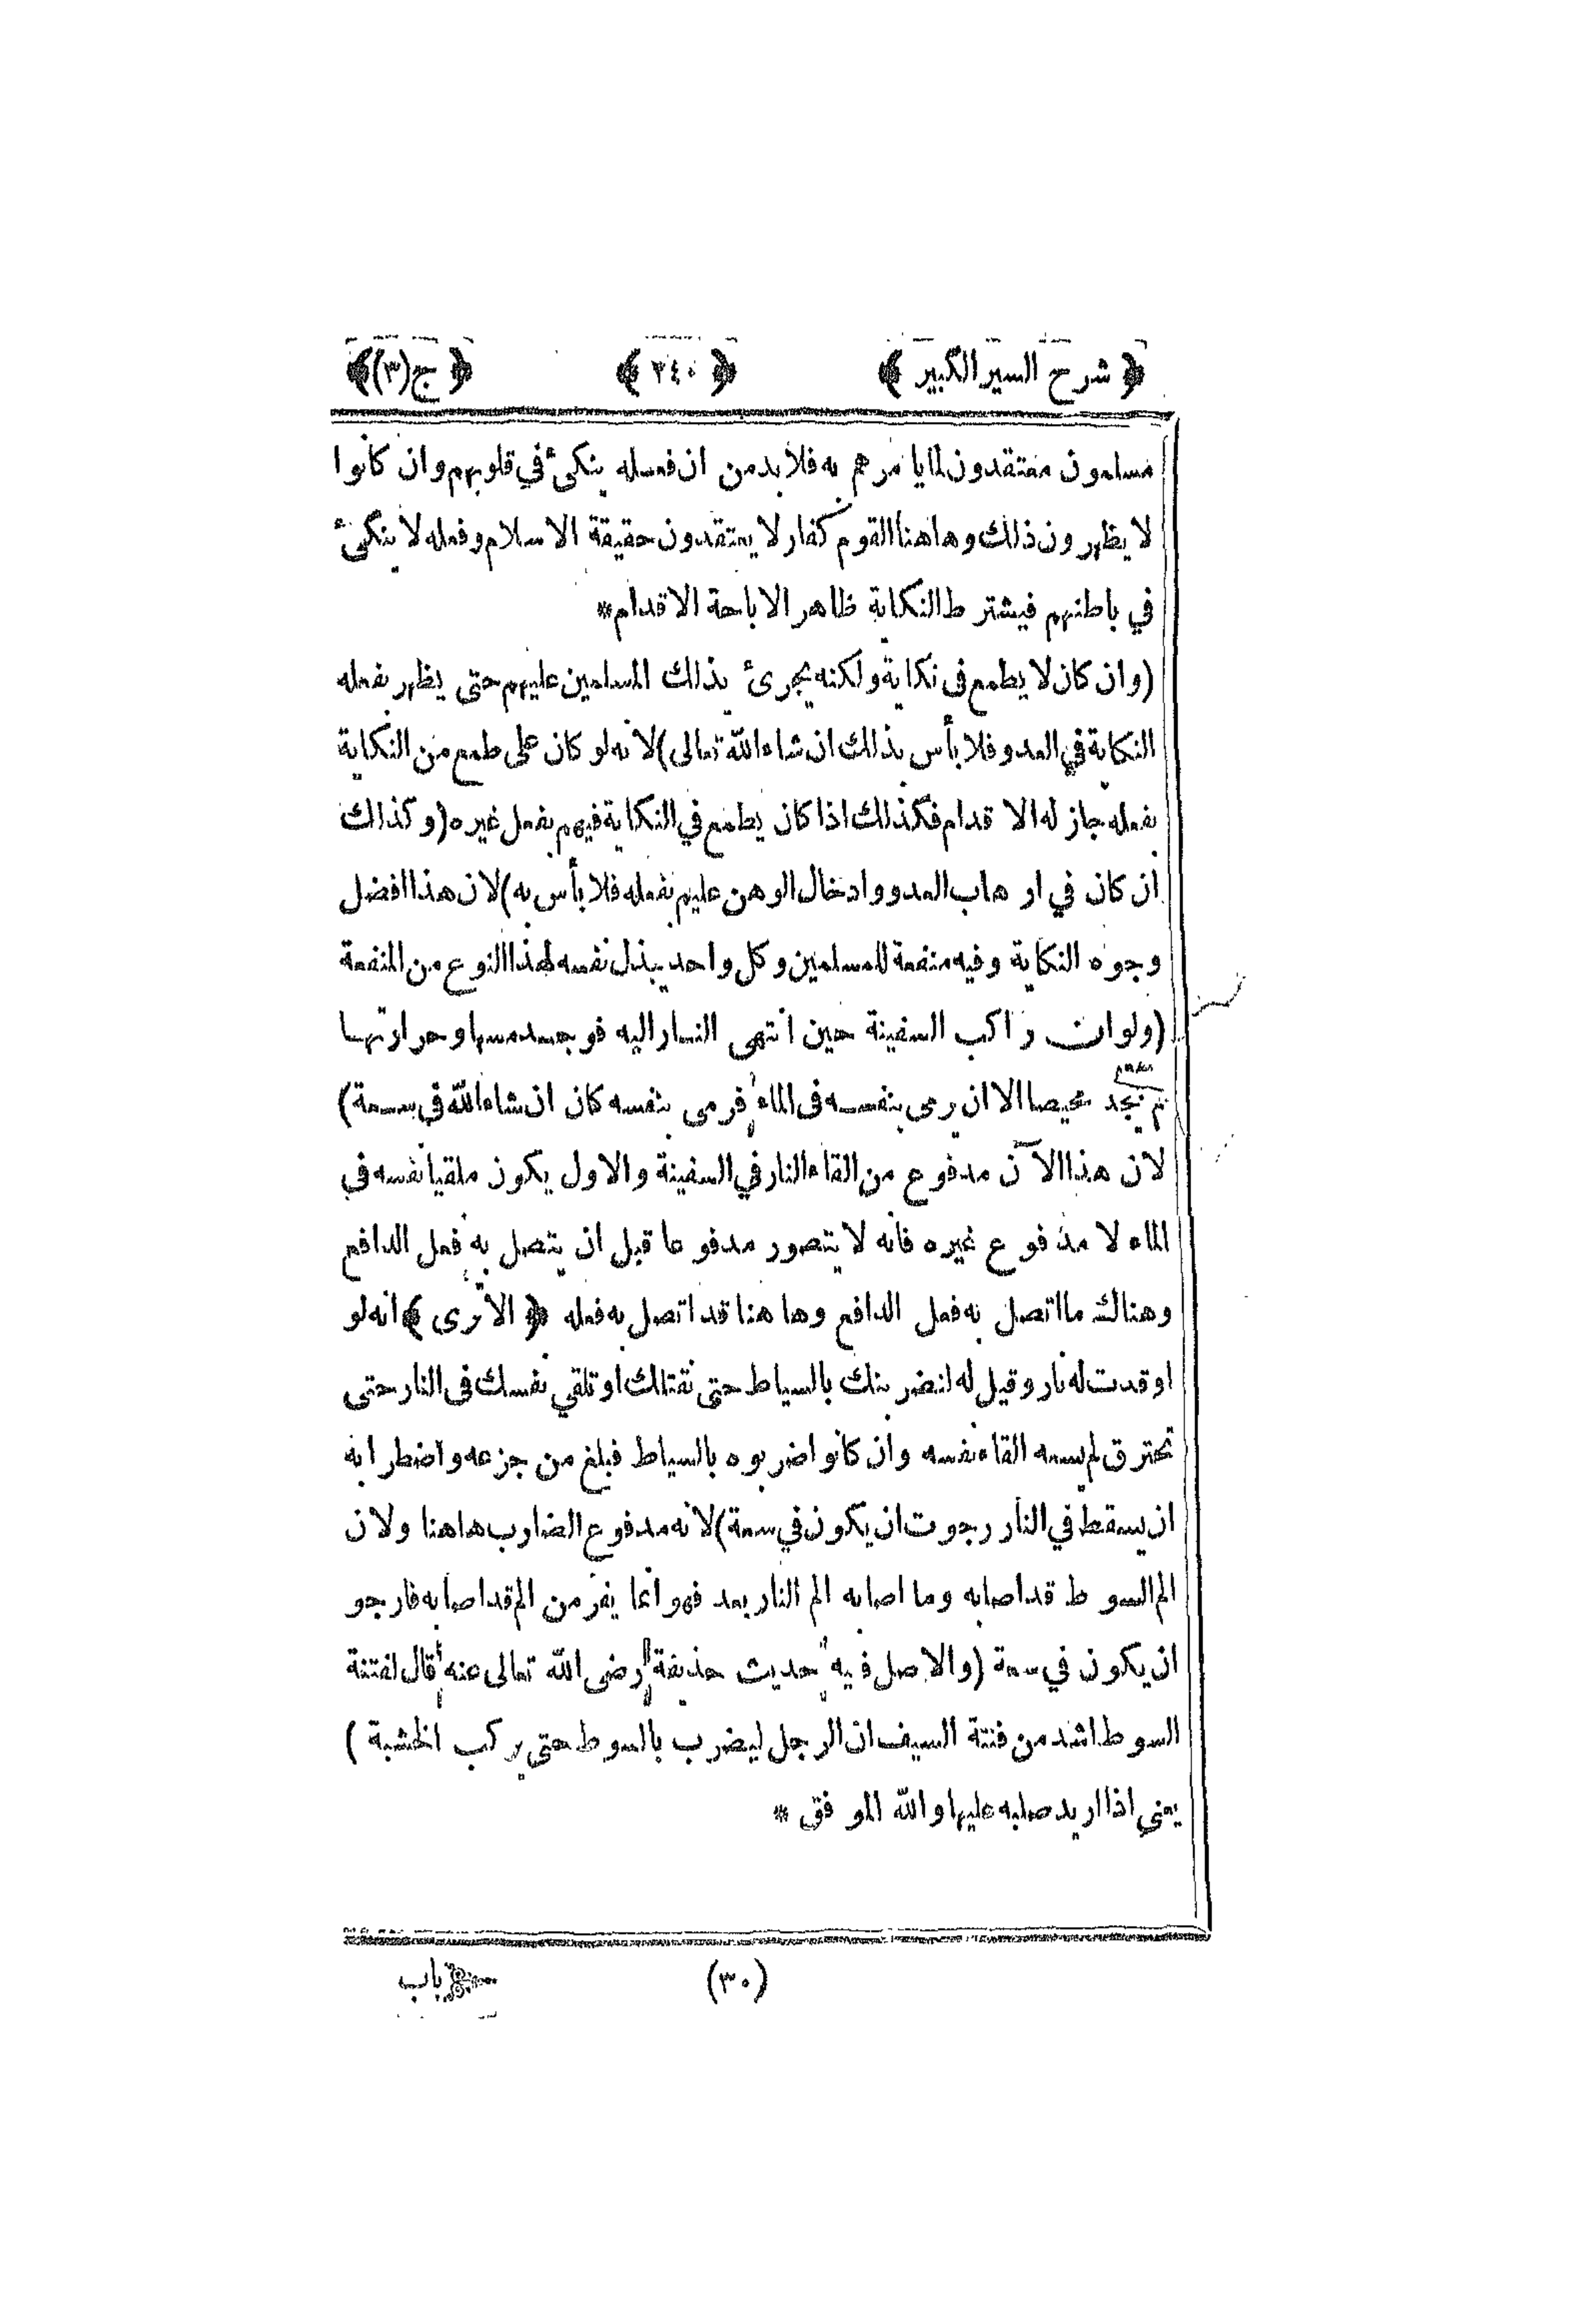 ﴿ شرح السير الكبير ﴾ ﴿ ٢٤٠ ﴾ ﴿ ج(٣)﴾
مسلمون معتقدون لما يأمرهم به فلا بد من ان فعله ينكئ في قلوبهم وان كانوا
لا يظهرون ذلك وهاهنا القوم كفار لا يعتقدون حقيقة الاسلام وفعله لا ينكئ
في باطنهم فيشترط النكاية ظاهر الاباحة الاقدام*
(وان كان لا يطمع فى نكاية ولكنه يجرئ بذلك المسلمين عليهم حتى يظهر بفعله
النكاية في العدو فلا بأس بذلك ان شاء الله تعالى) لانه لو كان على طمع من النكاية
بفعله جاز له الاقدام فكذلك اذا كان يطمع في النكاية فيهم بفعل غيره (وكذلك
ان كان في ارهاب العدو وادخال الوهن عليهم بفعله فلا بأس به) لان هذا افضل
وجوه النكاية وفيه منفعة للمسلمين وكل واحد يبذل نفسه لهذا النوع من المنفعة
(ولو ان راكب السفينة حين انتهى النار اليه فوجد مسها وحرارتها
لم يجد محيصا الا ان يرمى بنفسه فى الماء فرمى بنفسه كان ان شاء الله فى سعة)
لان هذا الآن مدفوع من القاء النار في السفينة والاول يكون ملقيا نفسه في
الماء لا مدفوع غيره فانه لا يتصور مدفوعا قبل ان يتصل به فعل الدافع
وهناك ما اتصل به فعل الدافع وهاهنا قد اتصل به فعله ﴿ الا ترى ﴾ انه لو
اوقدت له نار وقيل له لنضربنك بالسياط حتى نقتلك او تلقي نفسك فى النار حتى
تحترق لم يسعه القاء نفسه وان كانوا ضربوه بالسياط فبلغ من جزعه واضطرابه
ان يسقط في النار رجوت ان يكون في سعة) لانه مدفوع الضارب هاهنا ولان
الم السوط قد اصابه وما اصابه الم النار بعد فهو انما يفر من الم قد اصابه فارجو
ان يكون في سعة (والاصل فيه حديث حذيفة رضى الله تعالى عنه قال لفتنة
السوط اشد من فتنة السيف ان الرجل ليضرب بالسوط حتى يركب الخشبة)
يعني اذا اريد صلبه عليها والله الموفق *
(٣٠) باب